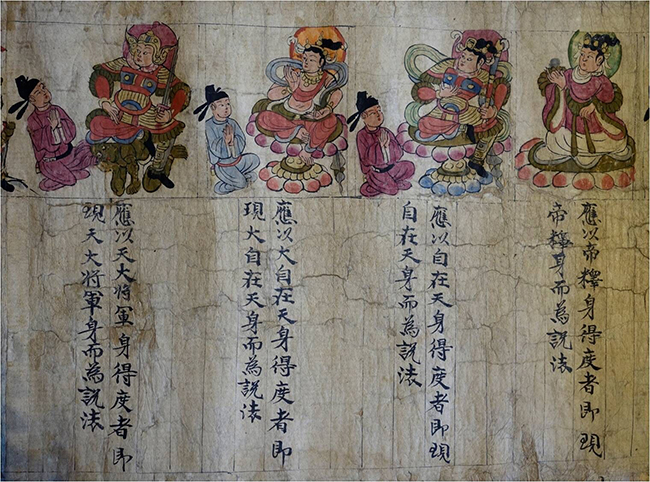 應以帝釋身得度者即現
帝釋身而為說法
應以自在天身得度者即現
自在天身而為說法
應以大自在天身得度者即
現大自在天身而為說法
應以天大將軍身得度者即
現天大將軍身而為說法